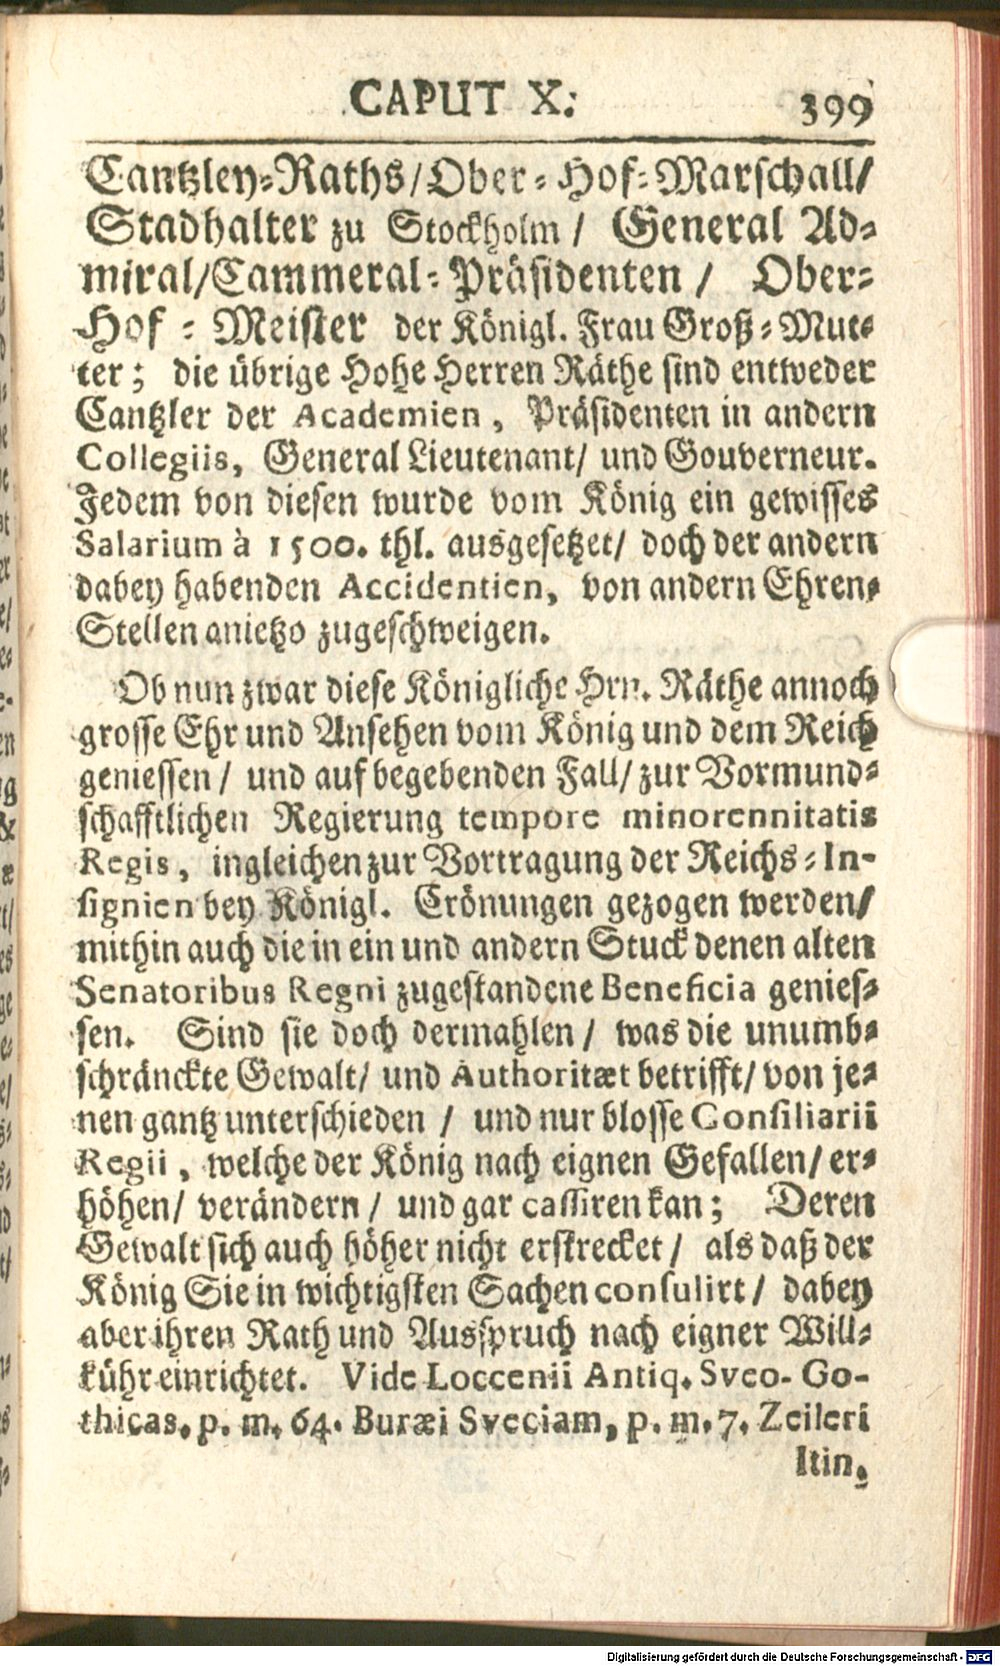 CAPUT X. 399
Cantzley-Raths/Ober-Hof-Marschall/
Stadhalter zu Stockholm / General Ad-
miral/Cammeral-Präsidenten / Ober-
Hof-Meister der Königl. Frau Groß-Mut-
ter; die übrige Hohe Herren Räthe sind entweder
Cantzler der Academien, Präsidenten in andern
Collegiis, General Lieutenant/ und Gouverneur.
Jedem von diesen wurde vom König ein gewisses
Salarium à 1500. thl. ausgesetzet/ doch der andern
dabey habenden Accidentien, von andern Ehren-
Stellen anietzo zugeschweigen.
Ob nun zwar diese Königliche Hrn. Räthe annoch
grosse Ehr und Ansehen vom König und dem Reich
geniessen/ und auf begebenden Fall/ zur Vormund-
schafftlichen Regierung tempore minorennitatis
Regis, ingleichen zur Vortragung der Reichs-In-
signien bey Königl. Crönungen gezogen werden/
mithin auch die in ein und andern Stuck denen alten
Senatoribus Regni zugestandene Beneficia genies-
sen. Sind sie doch dermahlen/ was die unumb-
schränckte Gewalt/ und Authoritæt betrifft/ von je-
nen gantz unterschieden / und nur blosse Consiliarii
Regii, welche der König nach eignen Gefallen/ er-
höhen/ verändern/ und gar cassiren kan; Deren
Gewalt sich auch höher nicht erstrecket/ als daß der
König Sie in wichtigsten Sachen consulirt/ dabey
aber ihren Rath und Ausspruch nach eigner Will-
kühr einrichtet. Vide Loccenii Antiq. Sveo-Go-
thicas, p. m. 64. Buræi Sveciam, p. m. 7. Zeileri
Itin.
Digitalisierung gefördert durch die Deutsche Forschungsgemeinschaft - DFG